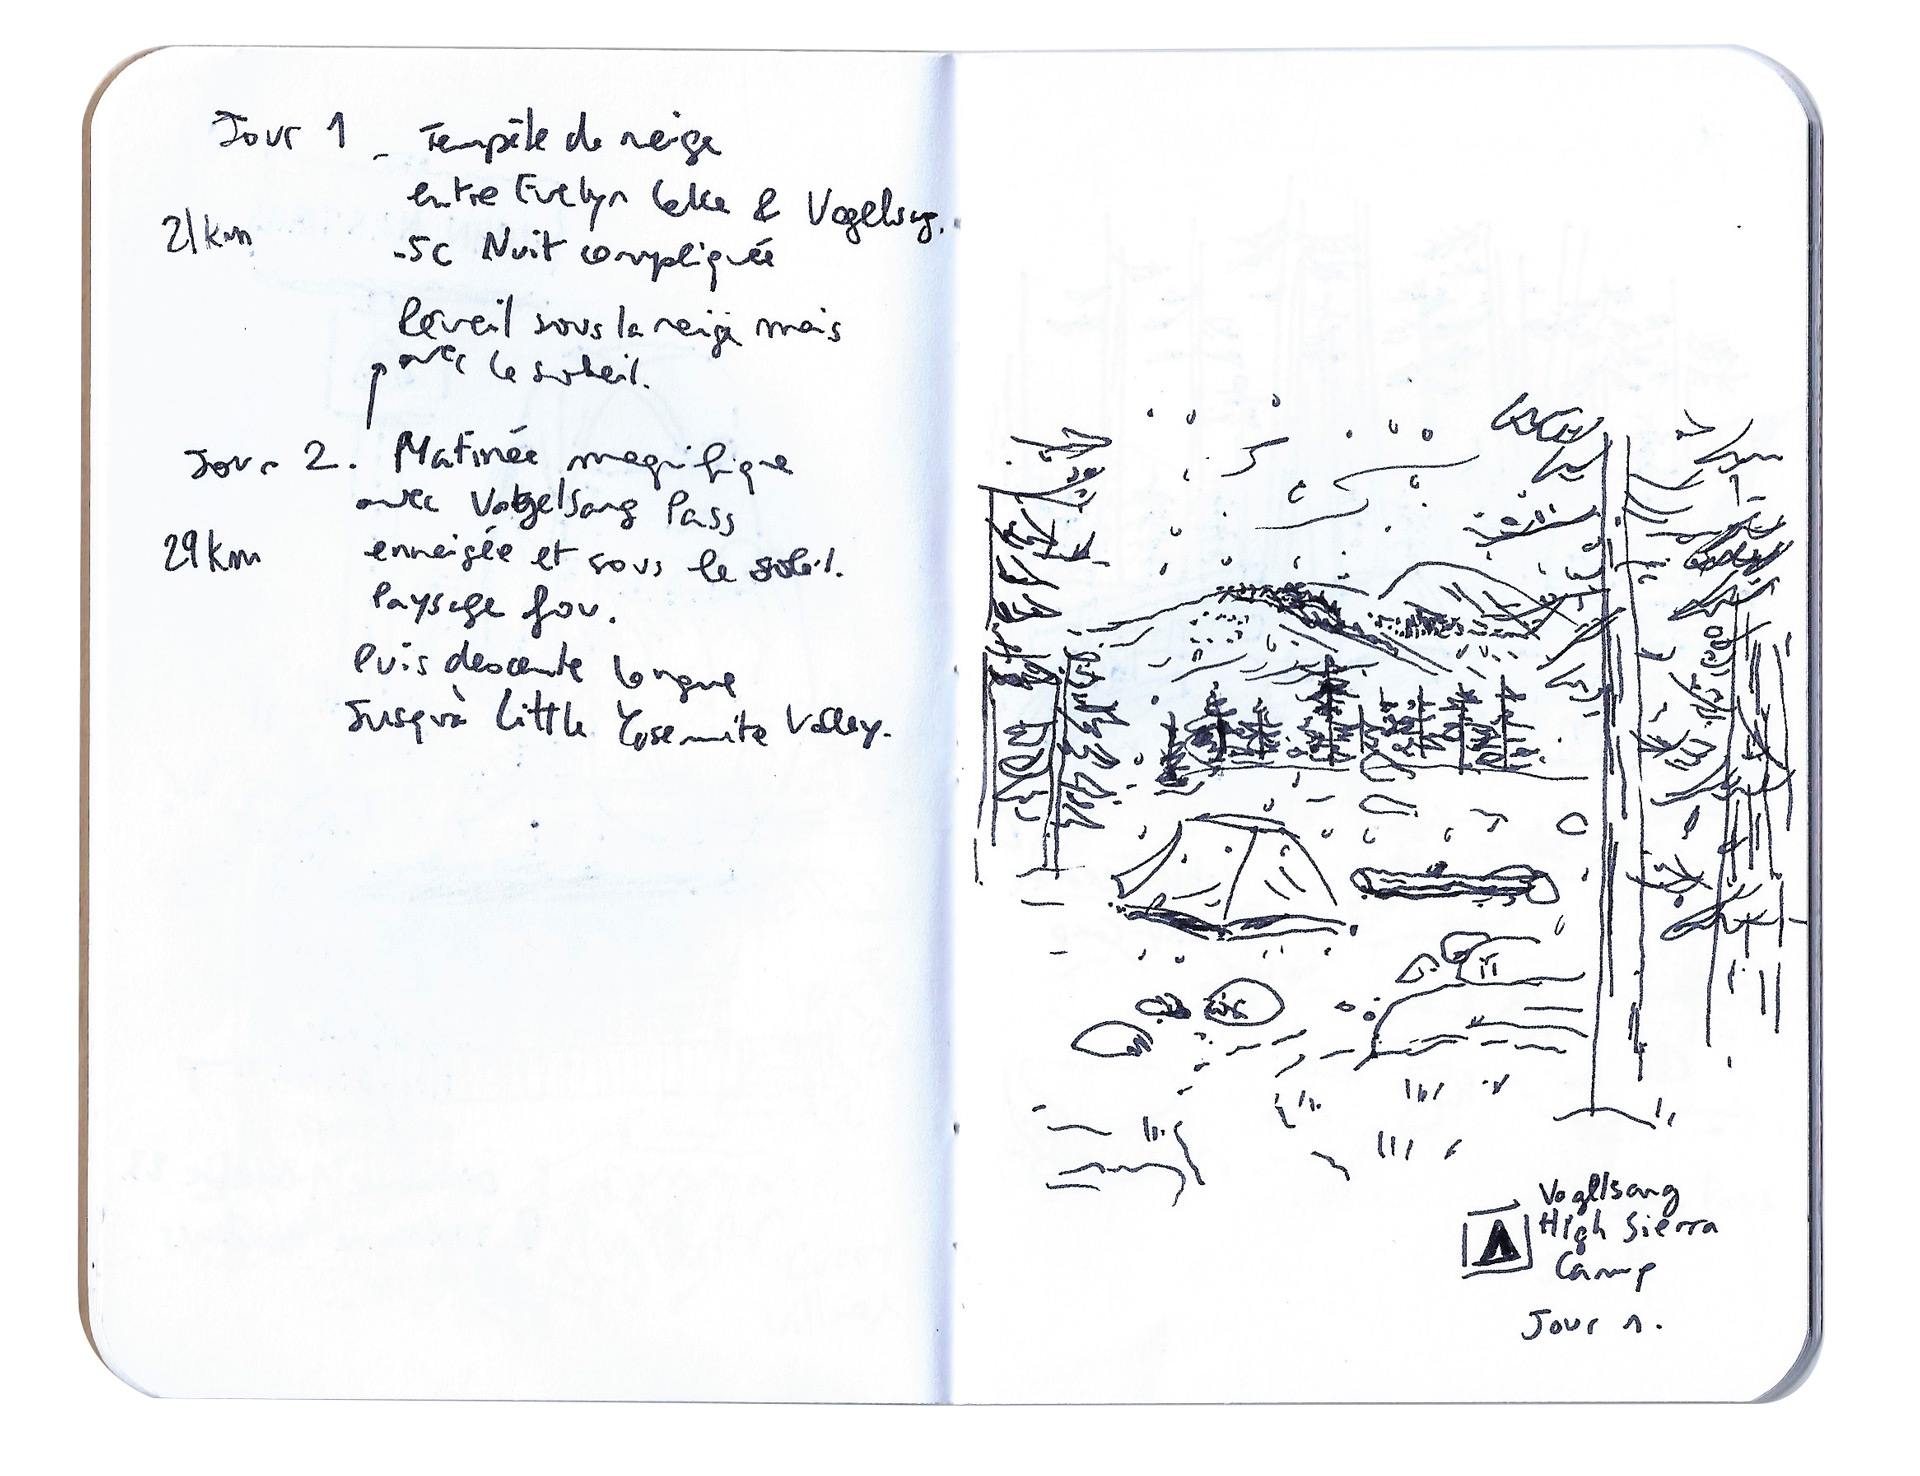 Jour 1 - Tempête de neige
entre Evelyn Lake & Vogelsang.
21km
-5c Nuit compliquée
Réveil sous la neige mais
avec le soleil.
Jour 2. Matinée magnifique
avec Vogelsang Pass
29km
enneigée et sous le soleil.
Paysage fou.
Puis descente longue
Jusqu'à Little Yosemite Valley.
Vogelsang
High Sierra
Camp
Jour 1.